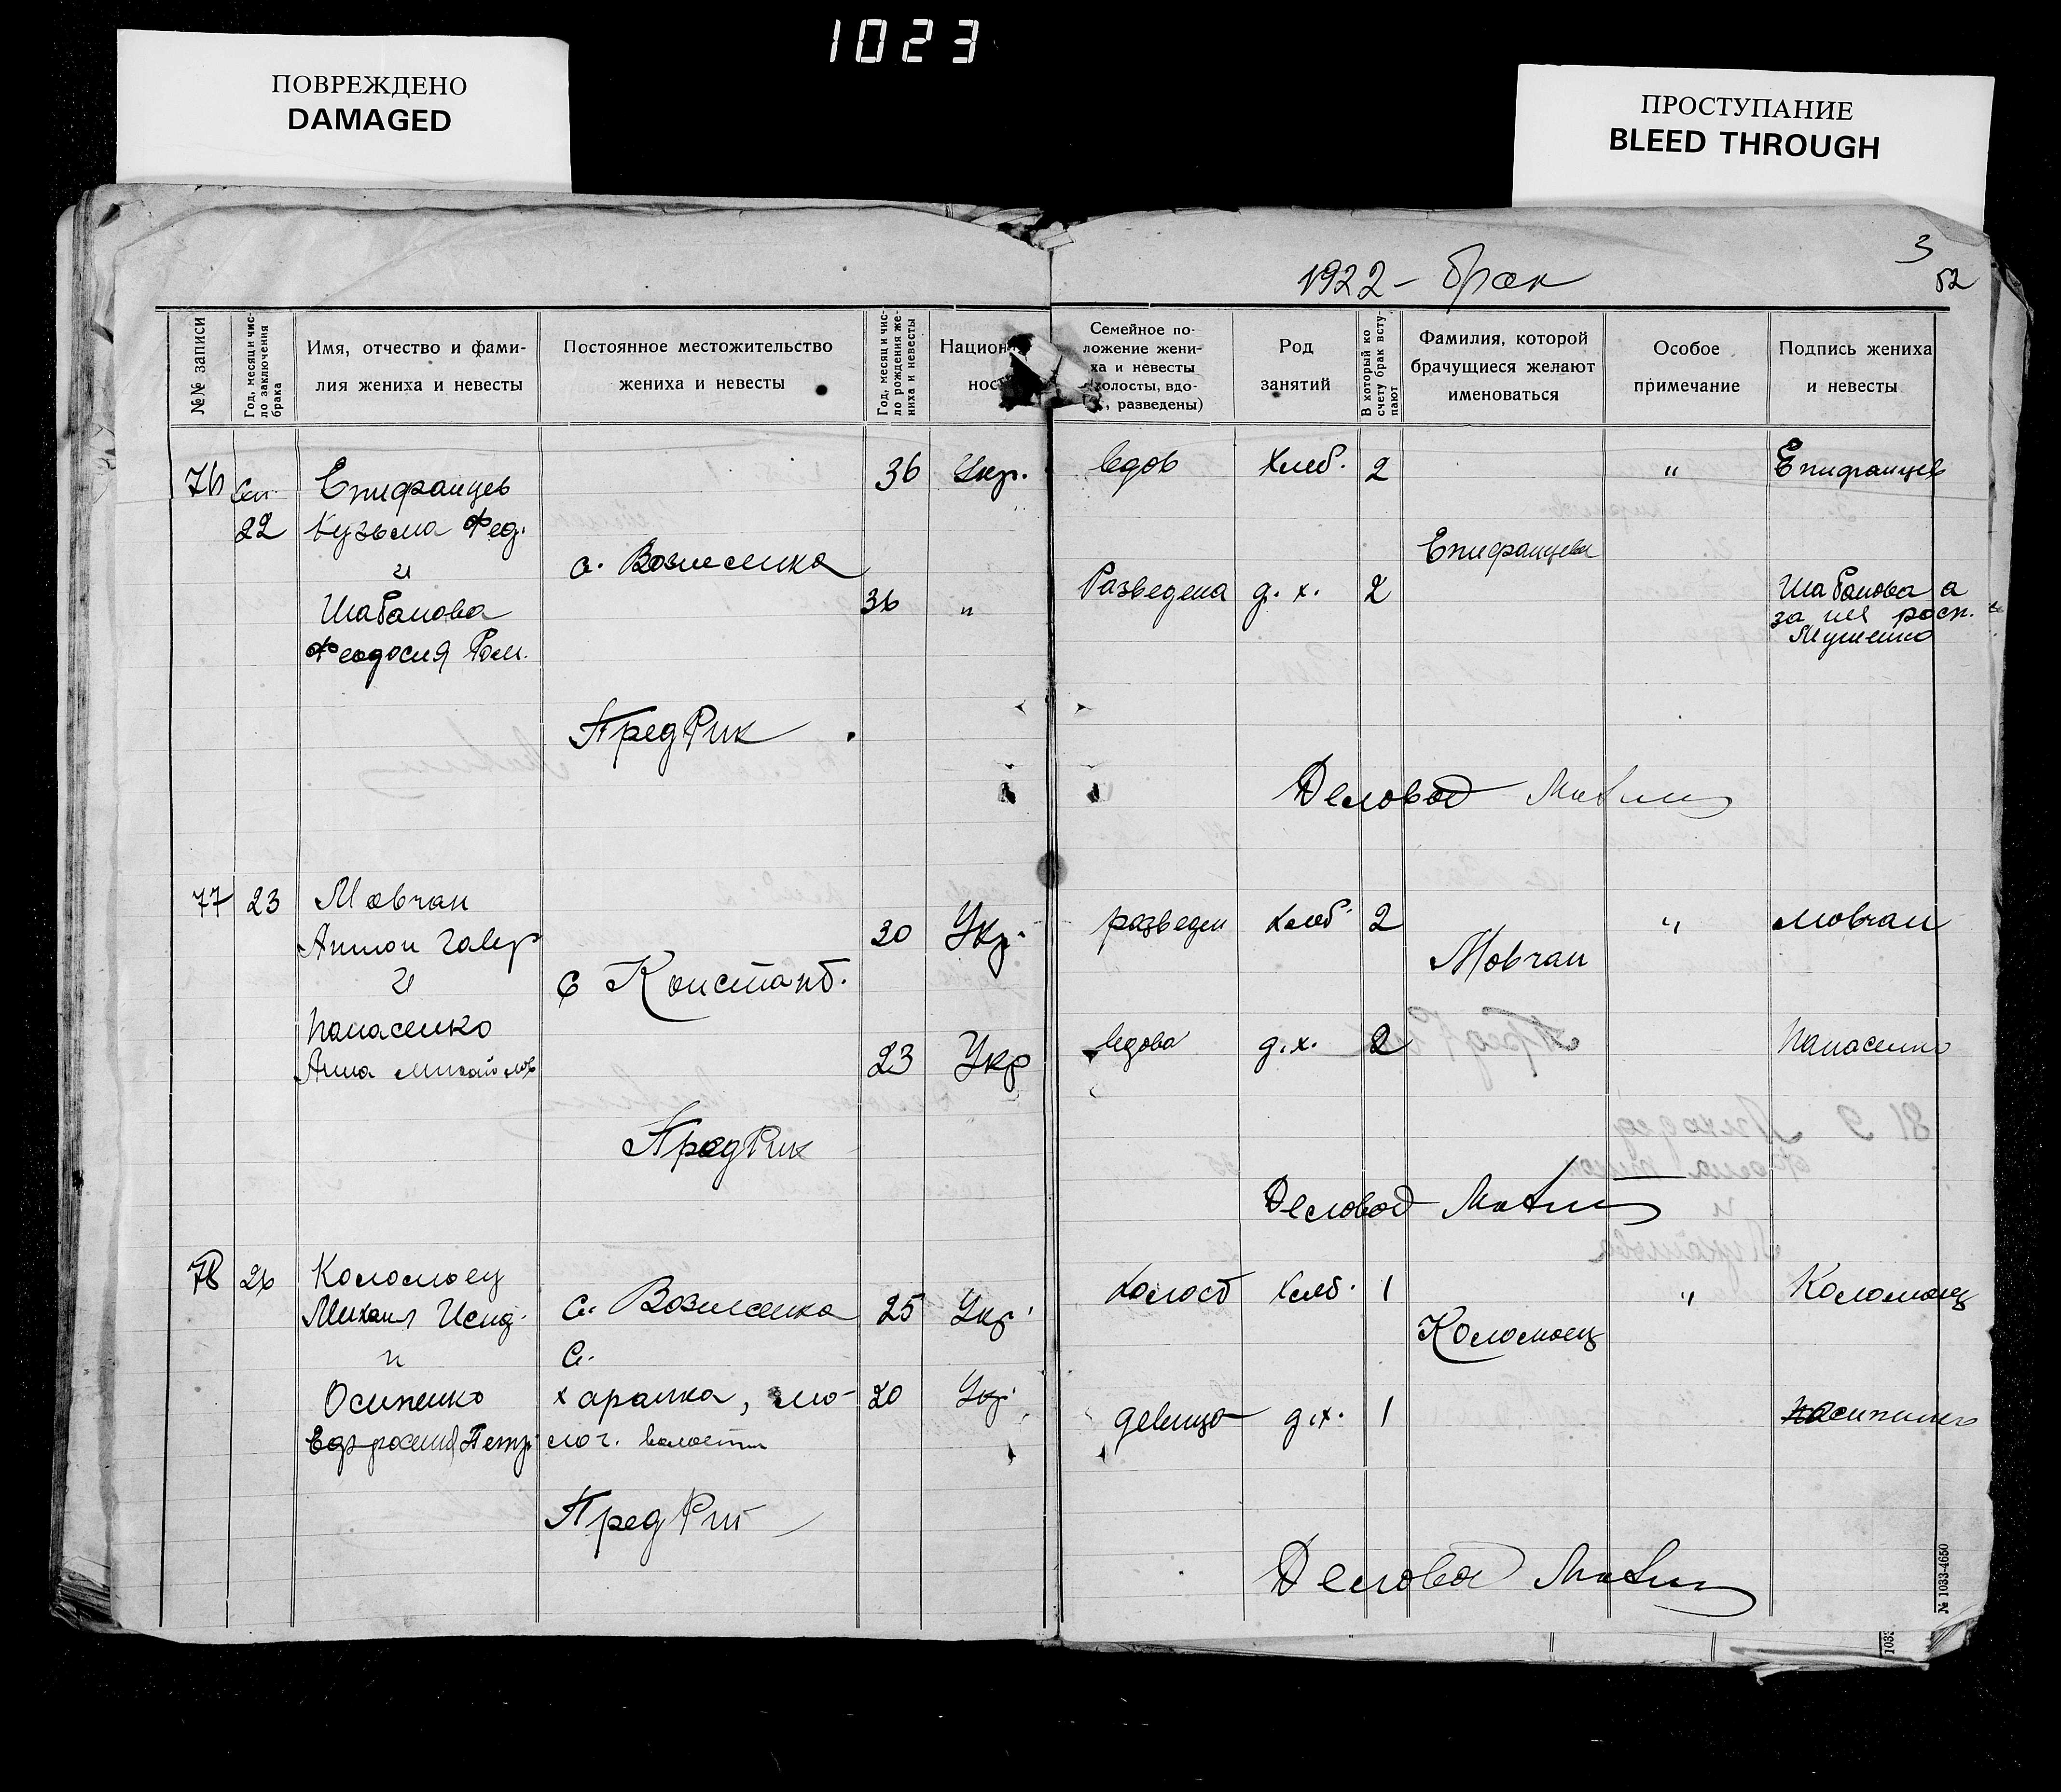 1023
ПОВРЕЖДЕНО
DAMAGED
ПРОСТУПАНИЕ
BLEED THROUGH
3
52
1922 - брак
№№ записи
Год, месяц и чис-
ло заключения
брака
Имя, отчество и фами-
лия жениха и невесты
Постоянное местожительство
жениха и невесты
Год, месяц и чис-
ло рождения же-
ниха и невесты
Национ
ност
Семейное по-
ложение жени-
ха и невесты
холосты, вдо-
, разведены)
Род
занятий
В который по
счету брак всту-
пают
Фамилия, которой
брачущиеся желают
именоваться
Особое
примечание
Подпись жениха
и невесты
76 Сен. Епифанцев 36 Укр. вдов Хлеб. 2 " Епифанцев
22 Кузьма Фед.
и с. Вознесенка Епифанцева
Шабанова 36 " Разведена д. х. 2 Шабанова а
Феодосия Ром. за нея росп.
Пред Рик
Деловод
77 23 Мовчан
Антон 30 Укр. разведен хлеб. 2 " Мовчан
и с Констант. Мовчан
Панасенко вдова д.х. 2 Панасенко
Анна Михайлов 23 Укр
Пред Рик
Деловод
78 26 Коломоец холост Хлеб. 1 " Коломоец
Михаил Исид. с. Вознесенка 25 Укр. Коломоец
и с.
Осипенко 20 Укр. девица д.х. 1
Ефросиния Петр. волости
Пред Рик
Деловод
№ 1033-4650